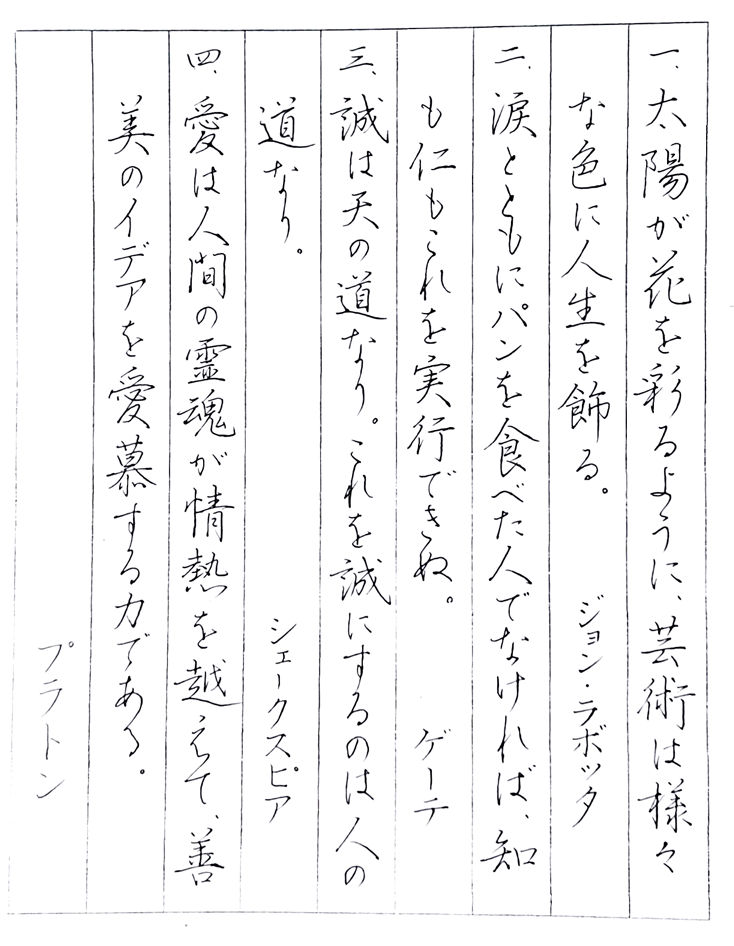 一、太陽が花を彩るように、芸術は様々
な色に人生を飾る。 ジョン・ラボッタ
二、涙とともにパンを食べた人でなければ、知
も仁もこれを実行できぬ。 ゲーテ
三、誠は天の道なり。これを誠にするのは人の
道なり。 シェークスピア
四、愛は人間の霊魂が情熱を越えて、善
美のイデアを愛慕する力である。
プラトン